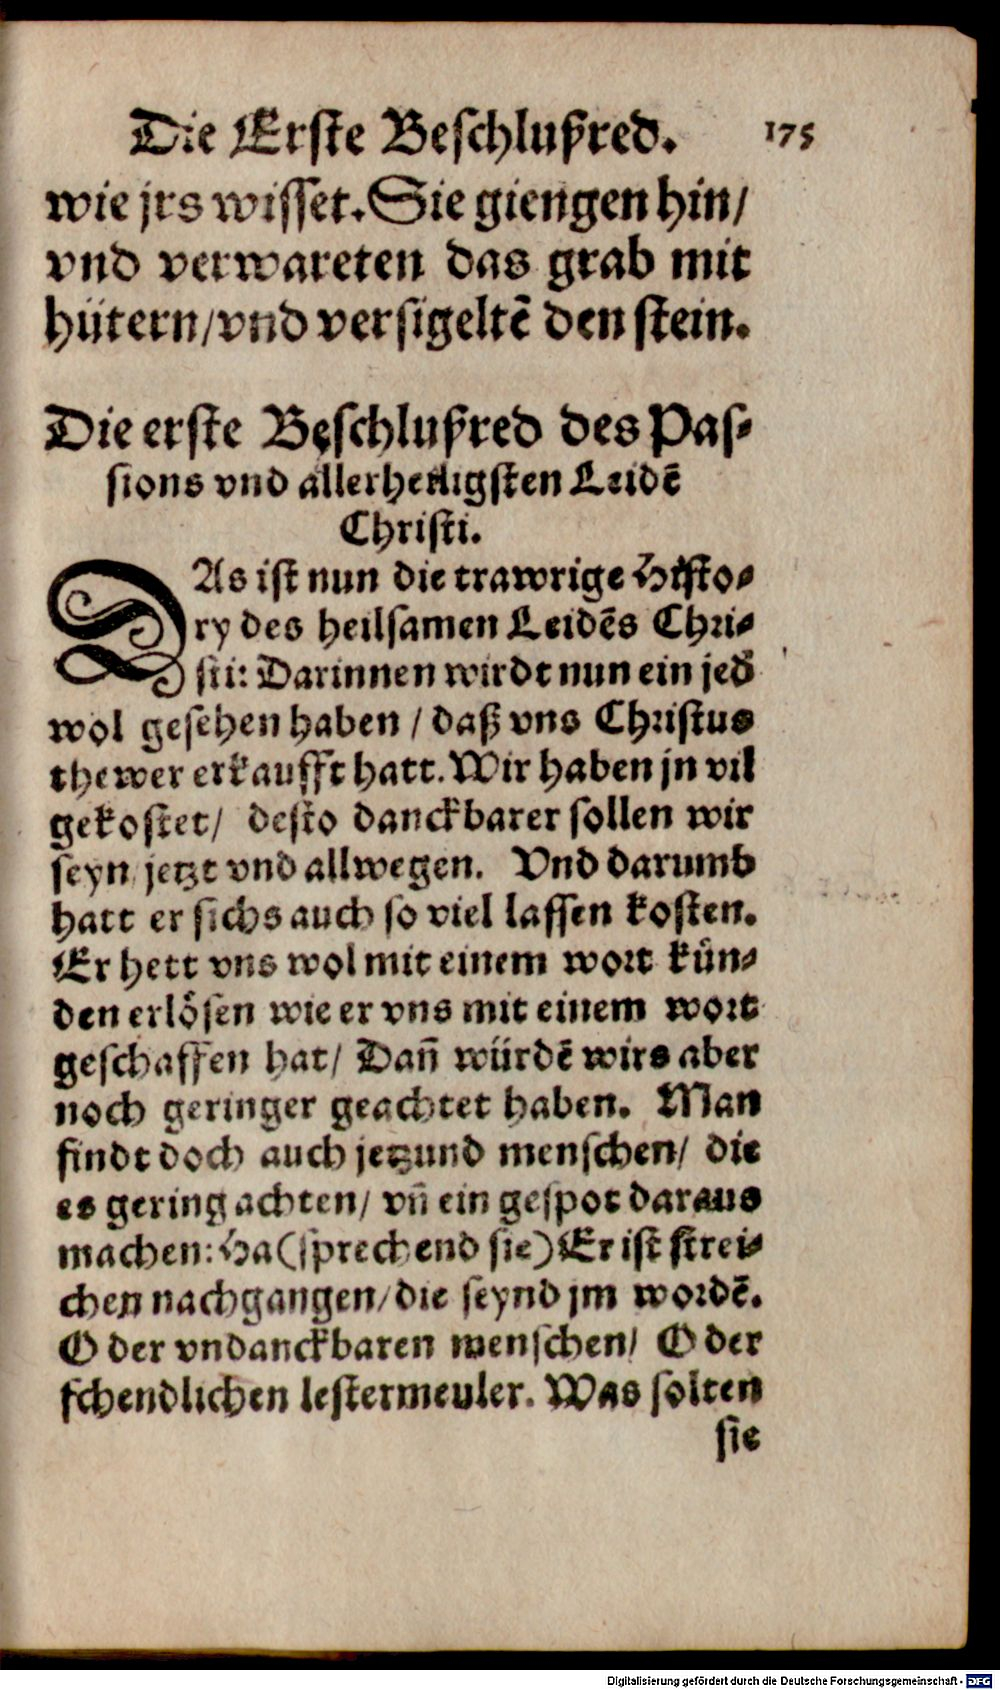 Die Erste Beschlußred. 175
wie jrs wisset. Sie giengen hin/
vnd verwareten das grab mit
hütern/vnd versigeltẽ den stein.
Die erste Beschlußred des Pas-
sions vnd allerheiligsten Leidẽ
Christi.
DAs ist nun die trawrige Histo-
ry des heilsamen Leidẽs Chri-
sti: Darinnen wirdt nun ein jed
wol gesehen haben / daß vns Christus
thewer erkaufft hatt. Wir haben jn vil
gekostet/ desto danckbarer sollen wir
seyn jetzt vnd allwegen. Vnd darumb
hatt er sichs auch so viel lassen kosten.
Er hett vns wol mit einem wort kün-
den erlösen wie er vns mit einem wort
geschaffen hat/ Dañ würdẽ wirs aber
noch geringer geachtet haben. Man
findt doch auch jetzund menschen/ die
es gering achten/ vñ ein gespot daraus
machen: Ha (sprechend sie) Er ist strei-
chen nachgangen/die seynd jm wordẽ.
O der vndanckbaren menschen/ O der
schendlichen lestermeuler. Was solten
sie
Digitalisierung gefördert durch die Deutsche Forschungsgemeinschaft - DFG